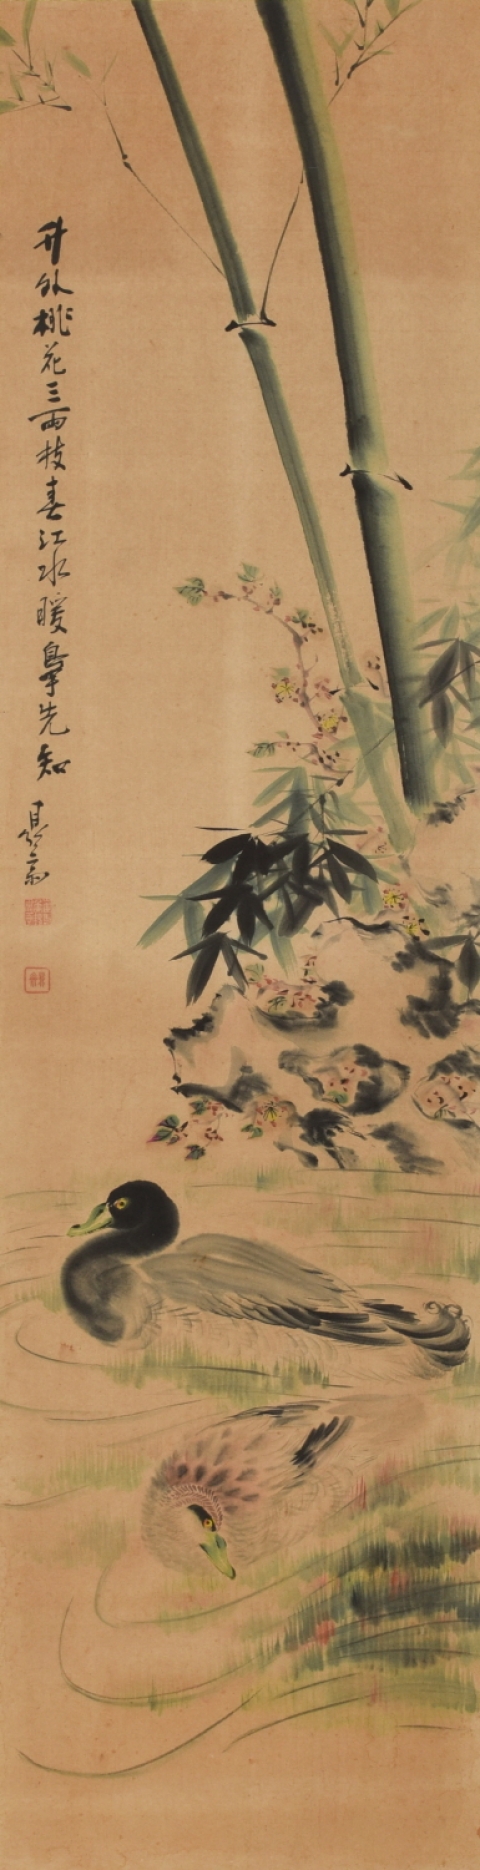 竹外桃花三兩枝春江水暖鳧先知